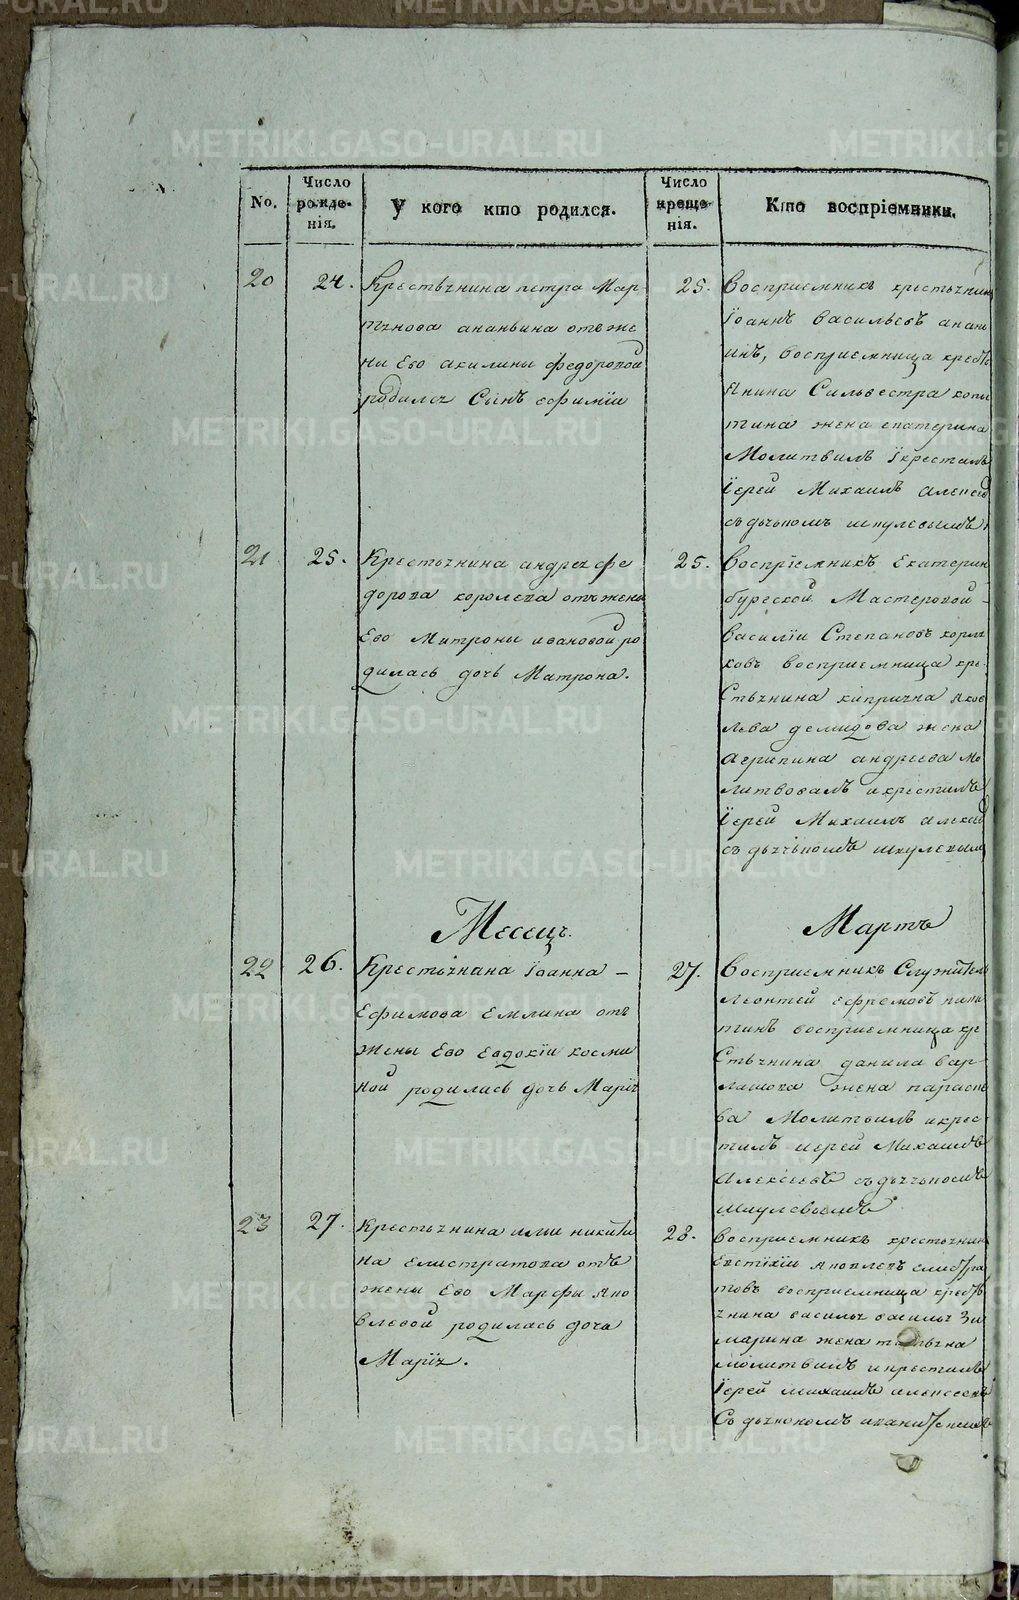 No.
Число рожде-нія.
У кого кто родился.
Число креще-нія.
Кто воспріемники.
20
24.
Крестьянина петра Мар-
тынова ананьина отъ же
ны Его акилины федоровой
родился Сынъ ефимiи
25.
Восприемникъ крестьянинъ
Iоаннъ Васильевъ анань
инъ, восприемница кресть
янина Сильвестра копы
тина жена екатерина
Молитвилъ Iкрестилъ
Iерей Михаилъ алексеевъ
съ дьячькомъ
21
25.
Крестьянина андрея фе
дорова королева отъ жены
Его Матроны ивановой ро
дилась дочь Матрона.
25.
Воспрiемникъ Екатерин
бургской Мастеровой
Василiи Степановъ
восприемница кре
Стьянина киприяна яков
лева демидова жена
агрипина андреева мо
литвовалъ икрестилъ
Iерей Михаилъ алексеевъ
съ дьячькомъ
Месецъ
Мартъ
22
26.
Крестьянина Iоанна
Ефимова Емлина отъ
жены Его Евдокiи косми
ной родилась дочь Марiя
27.
Восприемникъ Служитель
леонтей ефремовъ
восприемница кре
Стьянина данила вар
лакова жена параске
ва Молитвилъ икрес
тилъ иерей Михаилъ
Алексеевъ съ дьячькомъ
23
27.
Крестьянина ильи никити
на елистратова отъ
жены Его Марфы яко
влевой родилась дочь
Марiя.
28.
Восприемникъ крестьянинъ
яковлевъ елистра
товъ восприемница кресть
янина василья васильева Зи
марина жена татьяна
молитвилъ икрестилъ
Iерей михаилъ алексеевъ
Съ дьякономъ
METRIKI.GASO-URAL.RU